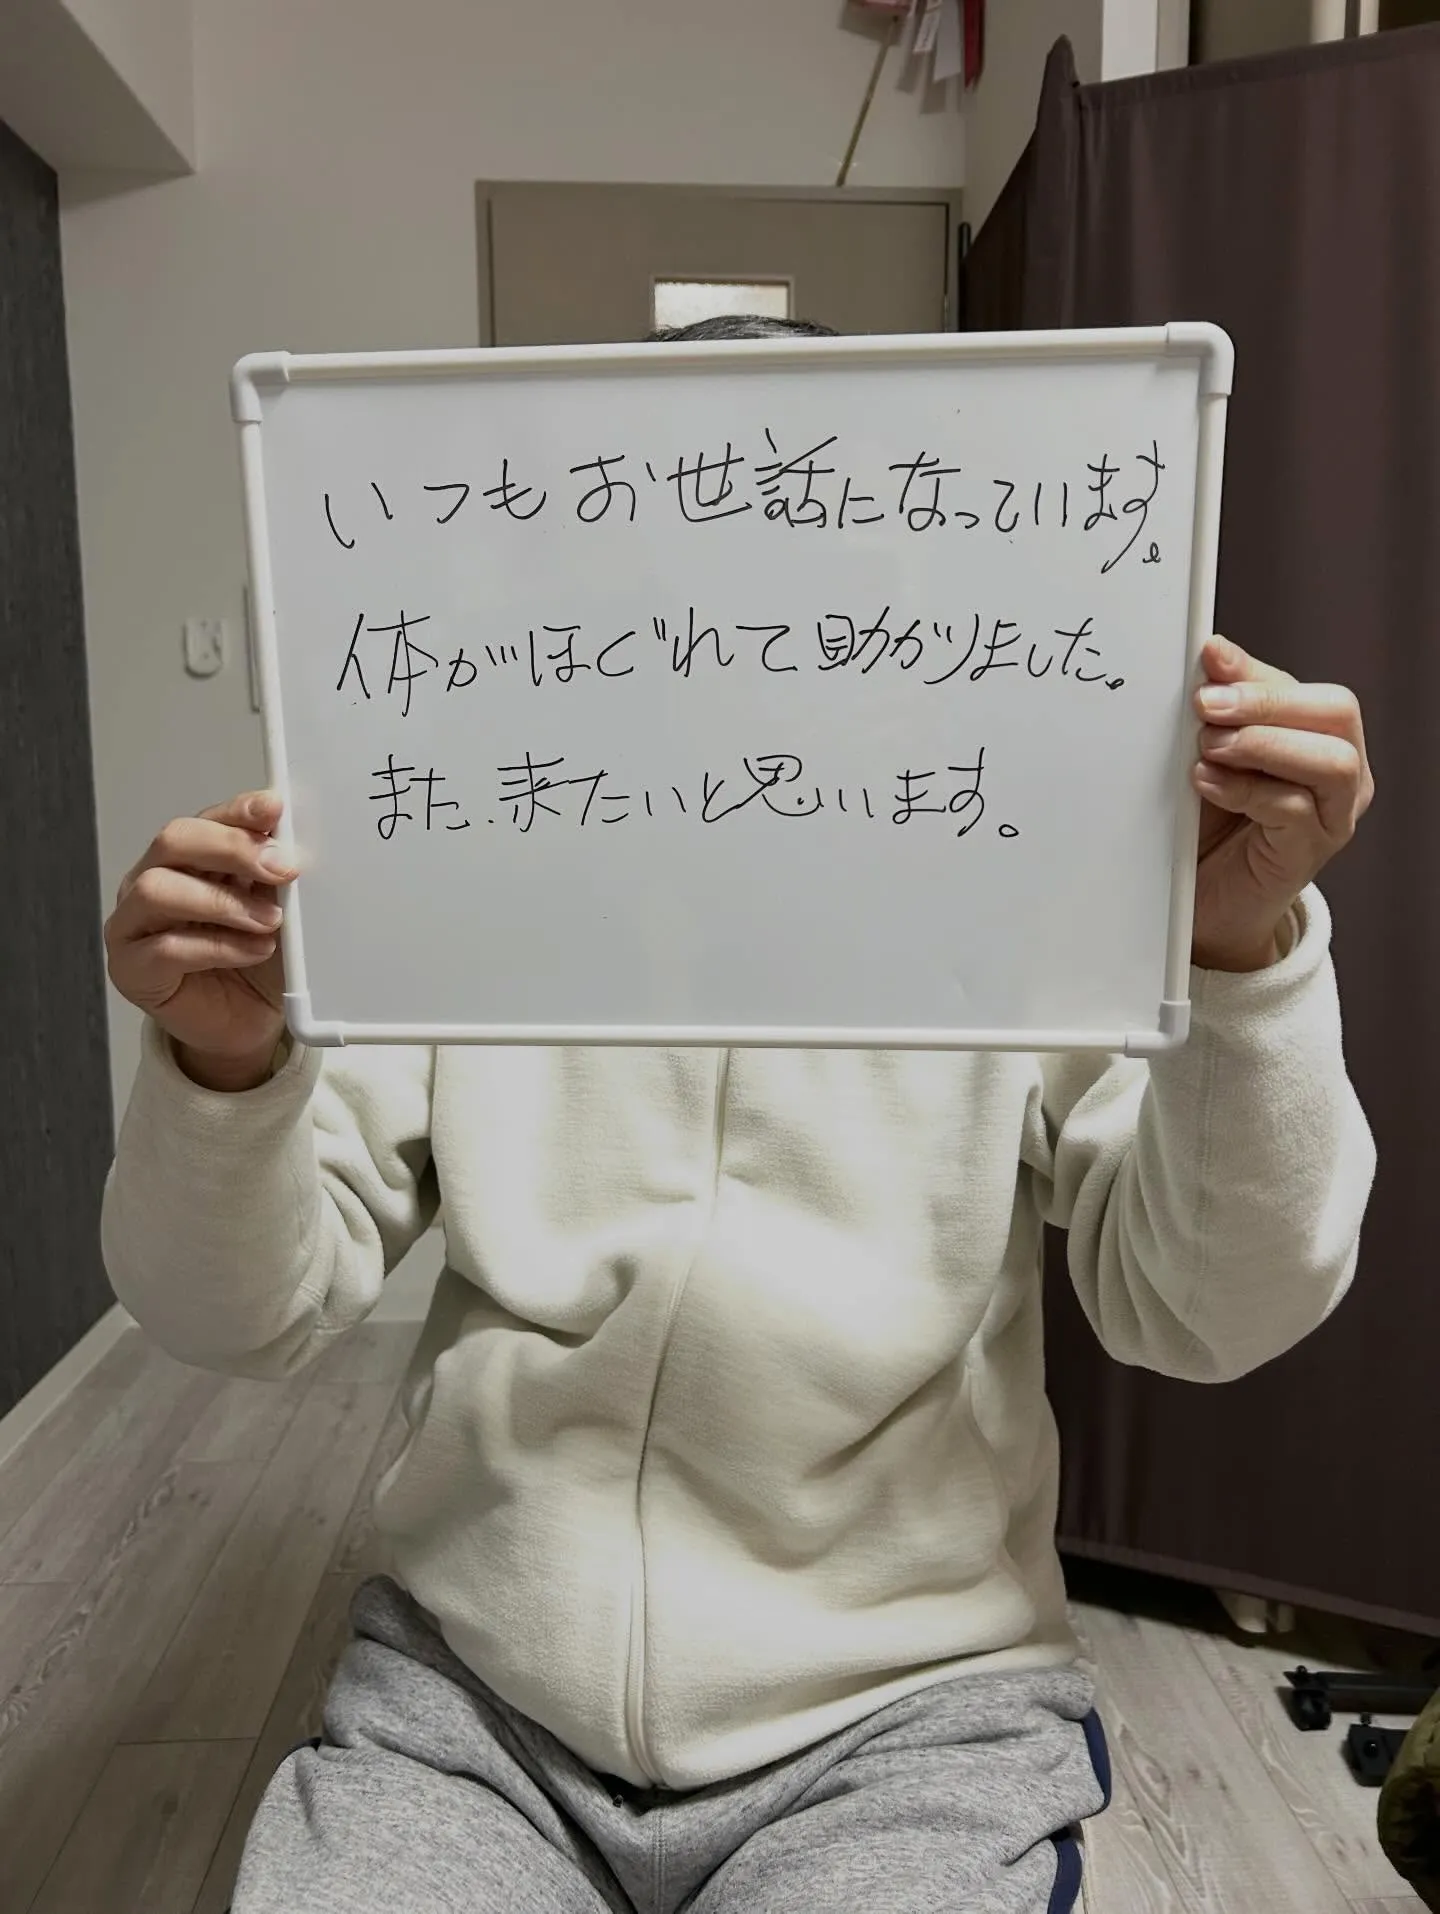 いつもお世話になっています。
体がほぐれて助かりました。
また、来たいと思います。